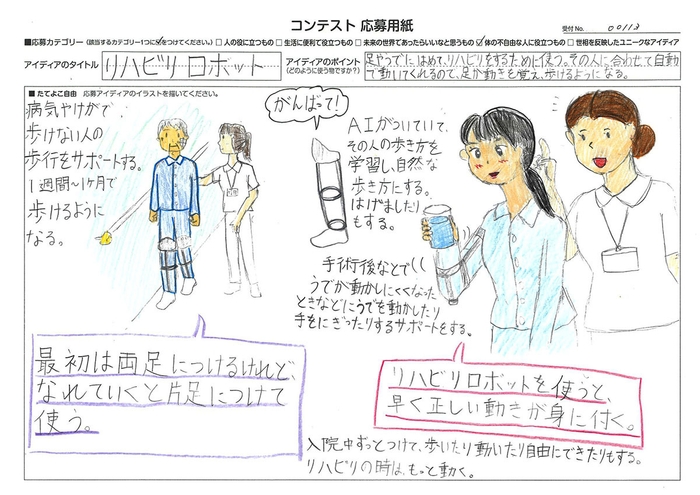 コンテスト 応募用紙
受付No. 00113
■応募カテゴリー(該当するカテゴリー1つに✓をつけてください。) □人の役に立つもの □生活に便利で役立つもの □未来の世界であったらいいなと思うもの ☑体の不自由な人に役立つもの □世相を反映したユニークなアイディア
アイディアのタイトル リハビリロボット
アイディアのポイント (どのように使う物ですか?) 足やうでに、はめて、リハビリをするために使う。その人に合わせて自動
で動いてくれるので、足が動きを覚え、歩けるようになる。
■たてよこ自由 応募アイディアのイラストを描いてください。
病気やけがで、
歩けない人の
歩行をサポートする。
1週間~1ヶ月で
歩けるように
なる。
がんばって!
AIがついていて、
その人の歩き方を
学習し、自然な
歩き方にする。
はげましたり
もする。
手術後などで
うでが動かしにくくなった
ときなどにうでを動かしたり
手をにぎったりするサポートをする。
最初は両足につけるけれど、
なれていくと片足につけて
使う。
リハビリロボットを使うと、
早く正しい動きが身に付く。
入院中ずっとつけて、歩いたり動いたり自由にできたりもする。
リハビリの時は、もっと動く。